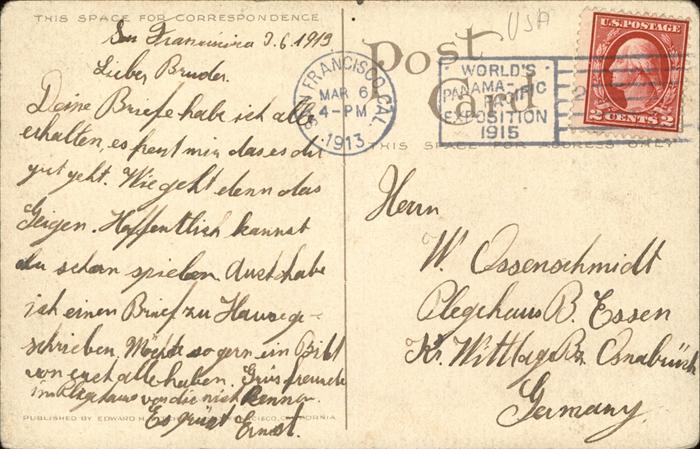 THIS SPACE FOR CORRESPONDENCE
San Francisco 3.6.1913
Lieber Bruder.
Deine Briefe habe ich alle
erhalten, es freut mir das es dir
gut geht. Wie geht denn das
Geigen. Hoffentlich kannst
du schon spielen. Auch habe
ich einen Brief zu Hause ge-
schrieben. Möchte so gern ein Bild
von euch alle haben. Grüs
im Plegehaus von die mich kennen.
Es grüst Ernst.
PUBLISHED BY EDWARD H. CALIFORNIA
USA
Post
Card
SAN FRANCISCO, CAL.
MAR 6
4-PM
1913
WORLD'S
PANAMA-PACIFIC
EXPOSITION
1915
U.S. POSTAGE
2 CENTS 2
THIS SPACE FOR ADDRESS ONLY
Herrn
W. Ossenschmidt
Plegehaus B. Essen
Kr. Wittlage Bz. Osnabrück
Germany.